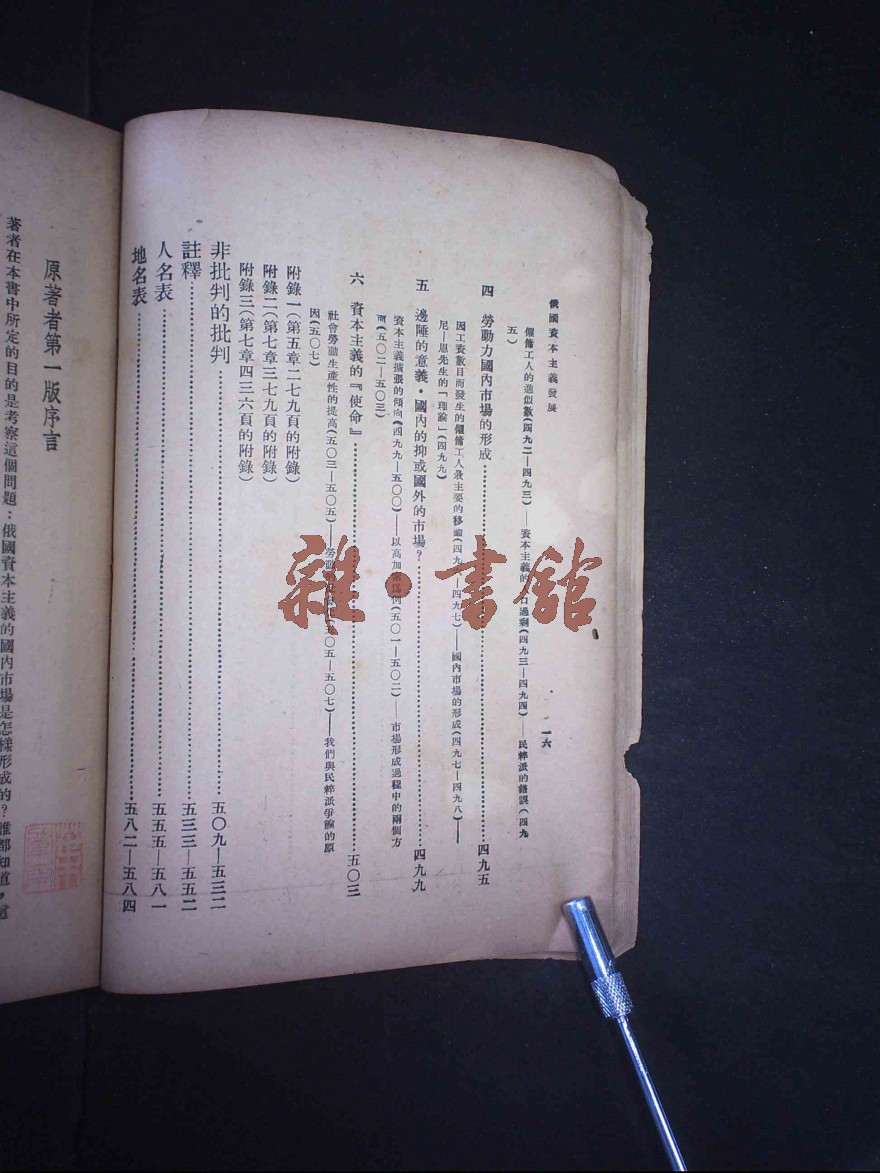 俄國資本主義發展
一六
僱傭工人的進似數(四九二—四九三)——資本主義的 口過剩(四九三—四九四)——民粹派的錯誤(四九
五)
四 勞動力國內市場的形成……四九五
因工資數目而發生的僱傭工人最主要的移 (四九 —四九七)——國內市場的形成(四九七—四九八)——
尼—恩先生的「理論」(四九九)
五 邊陲的意義・國內的抑或國外的市場?……四九九
資本主義擴張的傾向(四九九—五〇〇)——以高加索爲例(五〇一—五〇二)——市場形成過程中的兩個方
面(五〇二—五〇三)
六 資本主義的『使命』……五〇三
社會勞動生產性的提高(五〇三—五〇五)——勞動 (五〇五—五〇七)——我們與民粹派爭論的原
因(五〇七)
附錄一(第五章二七九頁的附錄)
附錄二(第七章三七九頁的附錄)
附錄三(第七章四三六頁的附錄)
非批判的批判……五〇九—五三二
註釋……五三三—五五二
人名表……五五五—五八一
地名表……五八二—五八四
原著者第一版序言
著者在本書中所定的目的是考察這個問題:俄國資本主義的國內市場是怎樣形成的?誰都知道,這
雜・書館